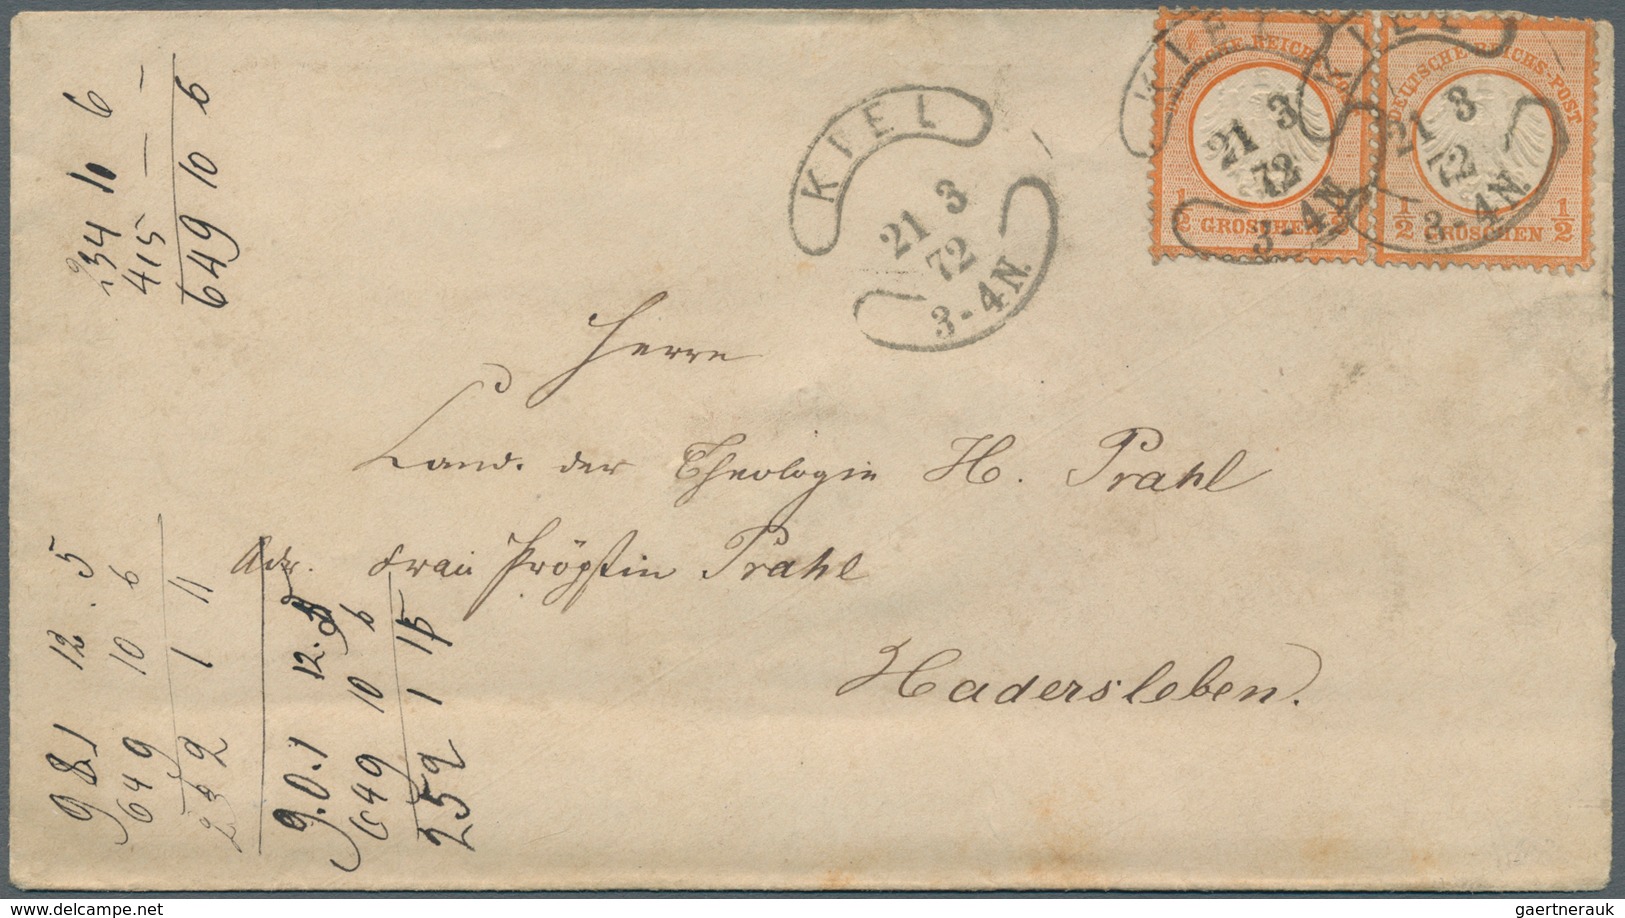 KIEL
21 3
72
3-4N.
KIE
21 3
72
3-4N
KIEL
21 3
72
3-4N.
DEUTSCHE REICHS-POST
1/2 GROSCHEN 1/2
DEUTSCHE REICHS-POST
1/2 GROSCHEN 1/2
Herrn
Cand. der Theologie H. Prahl
Adr. Frau Pröpstin Prahl
Hadersleben.
234 10 6
415 — —
649 10 6
981 12. 5
649 10 6
232 1 11
9.0.1 12.
649 10 6
252 1 15
gaertnerauk